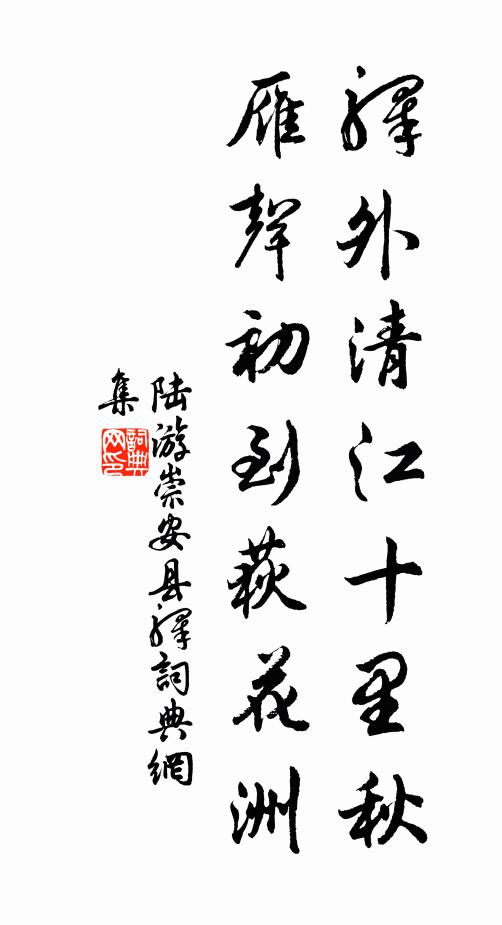 驛外清江十里秋
雁聲初到荻花洲
陆游崇安县驛詞典網
集
詞典网印